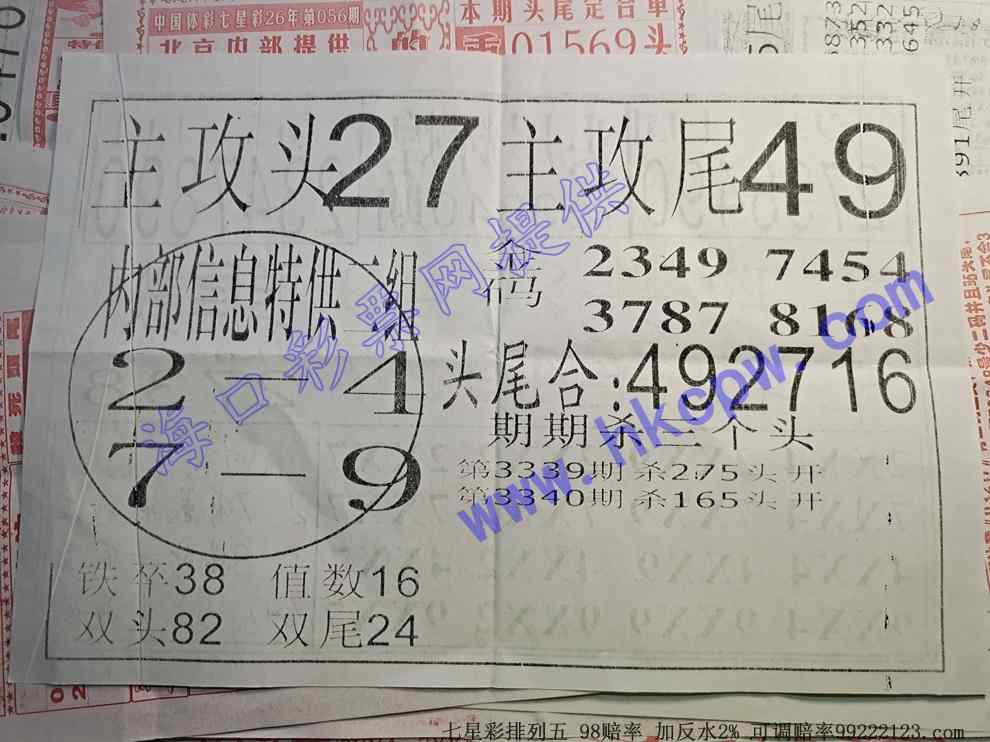 中国体彩七星彩26年第056期
北京内部提供
本期头尾定合单
01569头
主攻头27 主攻尾49
内部信息特供二组
2—4
7—9
金码 2349 7454
3787 8168
头尾合:492716
期期杀三个头
第3339期杀275头开
第3340期杀165头开
铁卒38 值数16
双头82 双尾24
海口彩票网提供
www.hkcpw.com
七星彩排列五 98赔率 加反水2% 可调赔率99222123.com